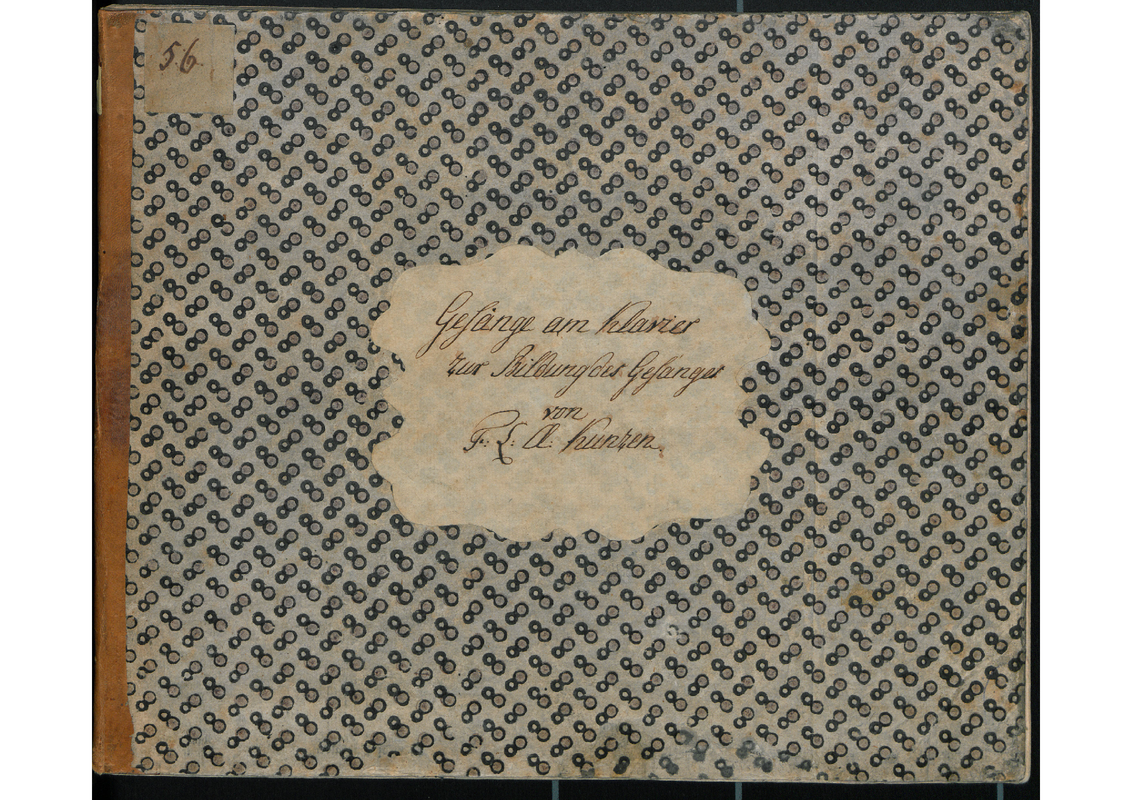 56
Gesänge am Klavier
zur Bildung des Gesanges
von
F: L: Æ: Kunzen.